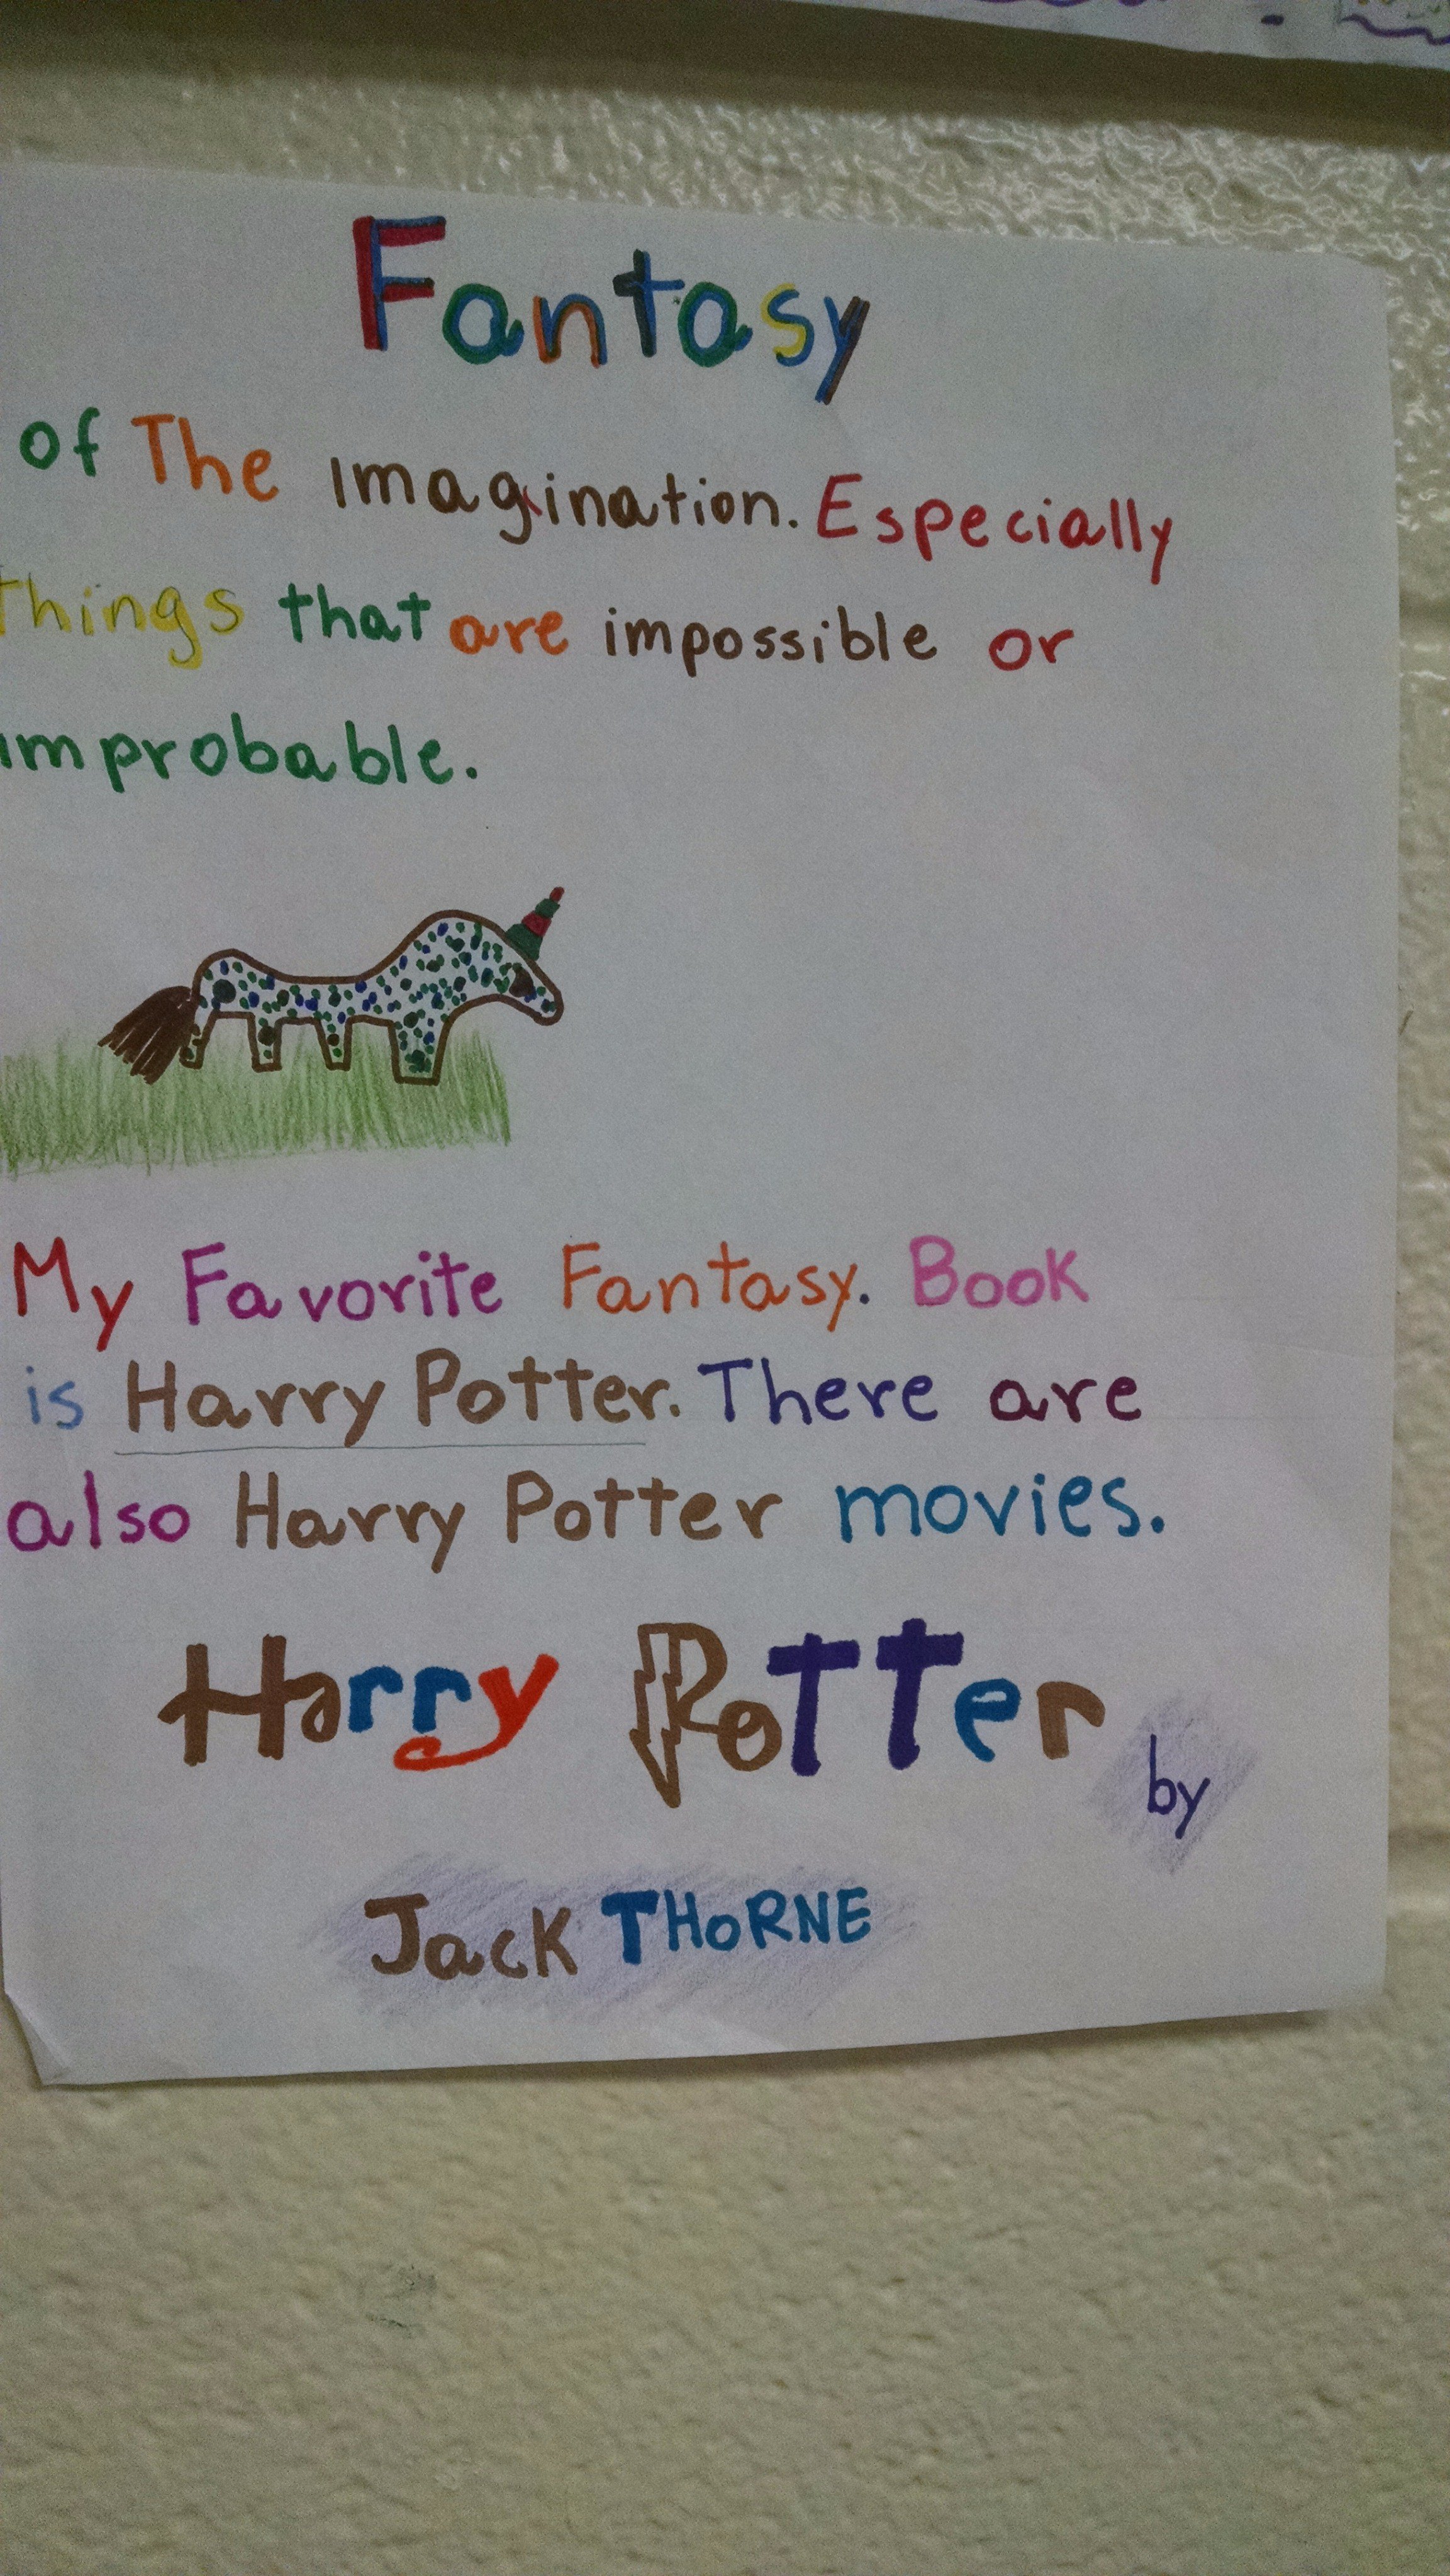 Fantasy
of The imagination. Especially
things that are impossible or
improbable.
My Favorite Fantasy. Book
is Harry Potter. There are
also Harry Potter movies.
Harry Potter by
Jack THORNE